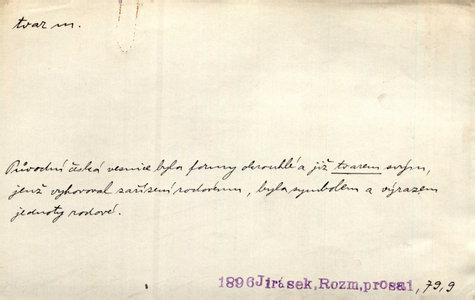 tvar m.
Původní česká vesnice byla formy okrouhlé a již tvarem svým,
jenž vyhovoval zařízení rodovému, byla symbolem a výrazem
jednoty rodové.
1896 Jirásek, Rozm, prosa1, 79,9